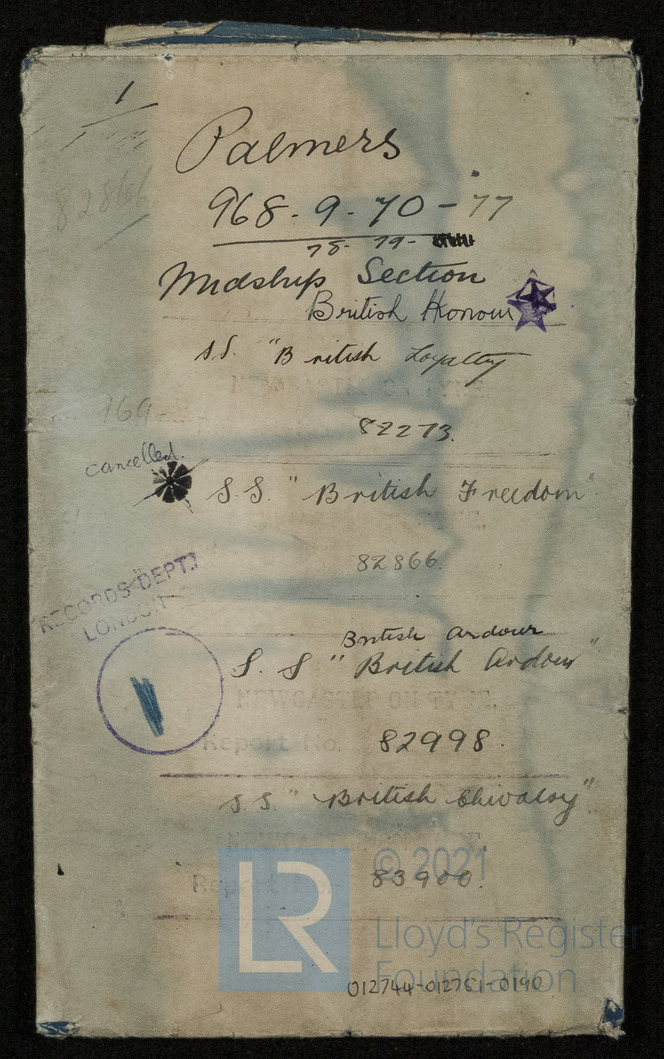 1
Palmers
82866
968-9-70-77
78-79-
Midship Section
British Honour
S.S. "British Loyalty
82273.
169
cancelled.
S.S. "British Freedom"
82866.
RECORDS DEPT.
LONDON
British Ardour
S.S "British Ardour"
NEWCASTLE ON TYNE.
Report No. 82998.
S.S. "British Chivalry"
Report No. 83900.
LR
© 2021
Lloyd's Register
Foundation
012744-012751-0190